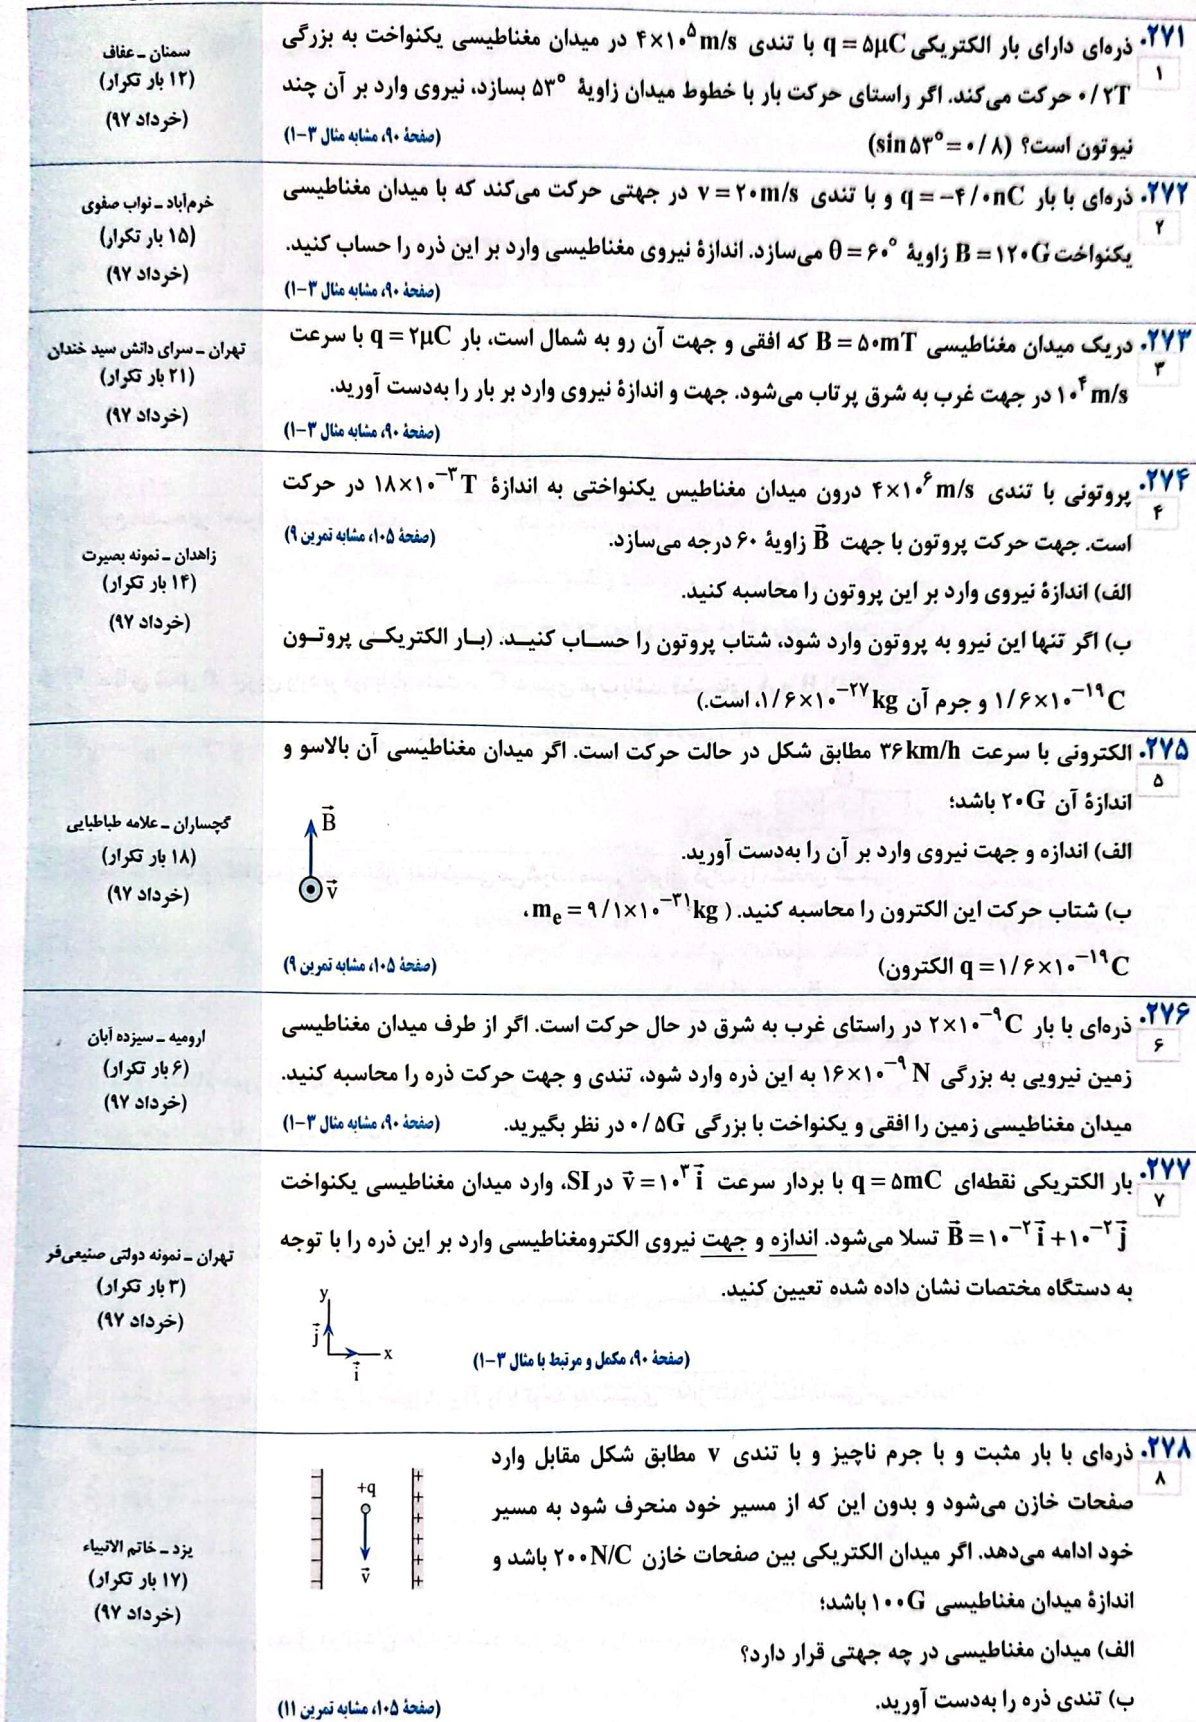 ۲۷۱. ذره‌ای دارای بار الکتریکی q = ۵μC با تندی ۴×۱۰⁵ m/s در میدان مغناطیسی یکنواخت به بزرگی
۱
۰/۲T حرکت می‌کند. اگر راستای حرکت بار با خطوط میدان زاویهٔ ۵۳° بسازد، نیروی وارد بر آن چند
نیوتون است؟ (sin۵۳° = ۰/۸)
(صفحهٔ ۹۰، مشابه مثال ۳-۱)
سمنان ـ عفاف
(۱۲ بار تکرار)
(خرداد ۹۷)
۲۷۲. ذره‌ای با بار q = −۴/۰nC و با تندی v = ۲۰m/s در جهتی حرکت می‌کند که با میدان مغناطیسی
۲
یکنواخت B = ۱۲۰G زاویهٔ θ = ۶۰° می‌سازد. اندازهٔ نیروی مغناطیسی وارد بر این ذره را حساب کنید.
(صفحهٔ ۹۰، مشابه مثال ۳-۱)
خرم‌آباد ـ نواب صفوی
(۱۵ بار تکرار)
(خرداد ۹۷)
۲۷۳. دریک میدان مغناطیسی B = ۵۰mT که افقی و جهت آن رو به شمال است، بار q = ۲μC با سرعت
۳
۱۰⁴ m/s در جهت غرب به شرق پرتاب می‌شود. جهت و اندازهٔ نیروی وارد بر بار را به‌دست آورید.
(صفحهٔ ۹۰، مشابه مثال ۳-۱)
تهران ـ سرای دانش سید خندان
(۲۱ بار تکرار)
(خرداد ۹۷)
۲۷۴. پروتونی با تندی ۴×۱۰⁶ m/s درون میدان مغناطیس یکنواختی به اندازهٔ ۱۸×۱۰⁻³ T در حرکت
۴
است. جهت حرکت پروتون با جهت B⃗ زاویهٔ ۶۰ درجه می‌سازد.
(صفحهٔ ۱۰۵، مشابه تمرین ۹)
الف) اندازهٔ نیروی وارد بر این پروتون را محاسبه کنید.
ب) اگر تنها این نیرو به پروتون وارد شود، شتاب پروتون را حساب کنید. (بار الکتریکی پروتون
۱/۶×۱۰⁻¹⁹ C و جرم آن ۱/۶×۱۰⁻²⁷ kg، است.)
زاهدان ـ نمونه بصیرت
(۱۴ بار تکرار)
(خرداد ۹۷)
۲۷۵. الکترونی با سرعت ۳۶km/h مطابق شکل در حالت حرکت است. اگر میدان مغناطیسی آن بالاسو و
۵
اندازهٔ آن ۲۰G باشد؛
الف) اندازه و جهت نیروی وارد بر آن را به‌دست آورید.
ب) شتاب حرکت این الکترون را محاسبه کنید. (mₑ = ۹/۱×۱۰⁻³¹ kg ،
q = ۱/۶×۱۰⁻¹⁹ C الکترون)
(صفحهٔ ۱۰۵، مشابه تمرین ۹)
B⃗
v⃗
گچساران ـ علامه طباطبایی
(۱۸ بار تکرار)
(خرداد ۹۷)
۲۷۶. ذره‌ای با بار ۲×۱۰⁻⁹ C در راستای غرب به شرق در حال حرکت است. اگر از طرف میدان مغناطیسی
۶
زمین نیرویی به بزرگی ۱۶×۱۰⁻⁹ N به این ذره وارد شود، تندی و جهت حرکت ذره را محاسبه کنید.
میدان مغناطیسی زمین را افقی و یکنواخت با بزرگی ۰/۵G در نظر بگیرید.
(صفحهٔ ۹۰، مشابه مثال ۳-۱)
ارومیه ـ سیزده آبان
(۶ بار تکرار)
(خرداد ۹۷)
۲۷۷. بار الکتریکی نقطه‌ای q = ۵mC با بردار سرعت v⃗ = ۱۰³ i⃗ در SI، وارد میدان مغناطیسی یکنواخت
۷
B⃗ = ۱۰⁻² i⃗ + ۱۰⁻² j⃗ تسلا می‌شود. اندازه و جهت نیروی الکترومغناطیسی وارد بر این ذره را با توجه
به دستگاه مختصات نشان داده شده تعیین کنید.
y
j⃗
x
i⃗
(صفحهٔ ۹۰، مکمل و مرتبط با مثال ۳-۱)
تهران ـ نمونه دولتی صنیعی‌فر
(۳ بار تکرار)
(خرداد ۹۷)
۲۷۸. ذره‌ای با بار مثبت و با جرم ناچیز و با تندی v مطابق شکل مقابل وارد
۸
صفحات خازن می‌شود و بدون این که از مسیر خود منحرف شود به مسیر
خود ادامه می‌دهد. اگر میدان الکتریکی بین صفحات خازن ۲۰۰N/C باشد و
اندازهٔ میدان مغناطیسی ۱۰۰G باشد؛
الف) میدان مغناطیسی در چه جهتی قرار دارد؟
ب) تندی ذره را به‌دست آورید.
(صفحهٔ ۱۰۵، مشابه تمرین ۱۱)
+q
v⃗
یزد ـ خاتم الانبیاء
(۱۷ بار تکرار)
(خرداد ۹۷)